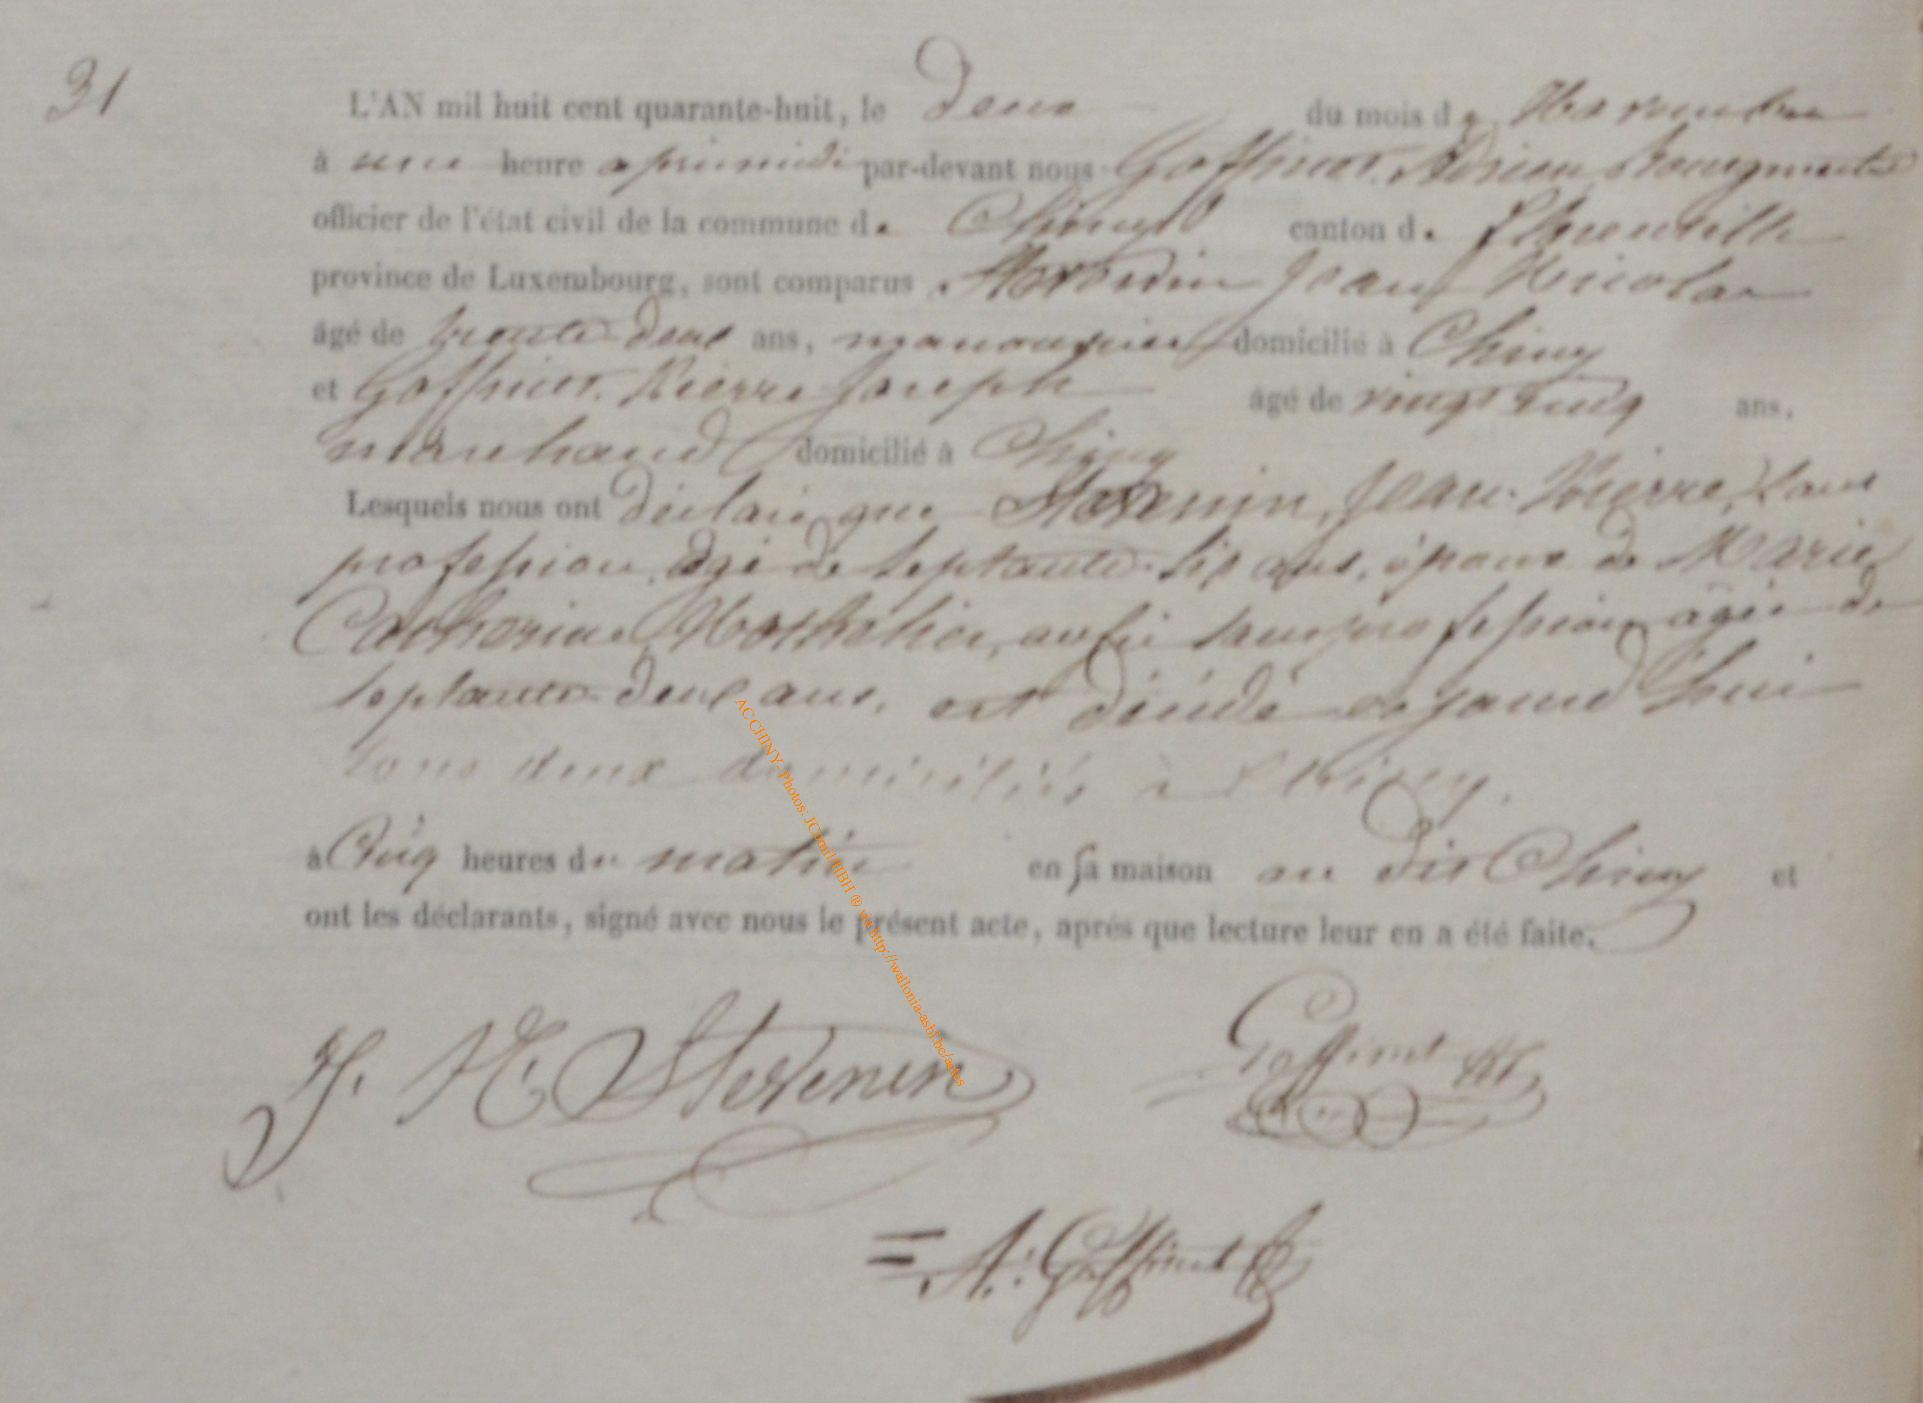 31
L'AN mil huit cent quarante-huit, le deux du mois de Novembre
à une heure aprèsmidi par-devant nous Goffinet, Adrien, Bourgmestre
officier de l'état civil de la commune de Chiny canton de Florenville
province de Luxembourg, sont comparus Stevenin Jean Nicolas
âgé de trente deux ans, manouvrier domicilié à Chiny
et Goffinet, Pierre Joseph âgé de vingt cinq ans.
marchand domicilié à Chiny
Lesquels nous ont déclaré que Stevenin, Jean Pierre, sans
profession, âgé de septante six ans, époux de Marie
Catherine aussi sans profession âgée de
septante deux ans, est décédé aujourd'hui
tous deux domiciliés à Chiny.
à Cinq heures du matin en sa maison au dit Chiny et
ont les déclarants, signé avec nous le présent acte, après que lecture leur en a été faite.
J. N. Stevenin Goffinet
A. Goffinet
AC CHINY - Photos: http://wallonia-asbl.be/actes